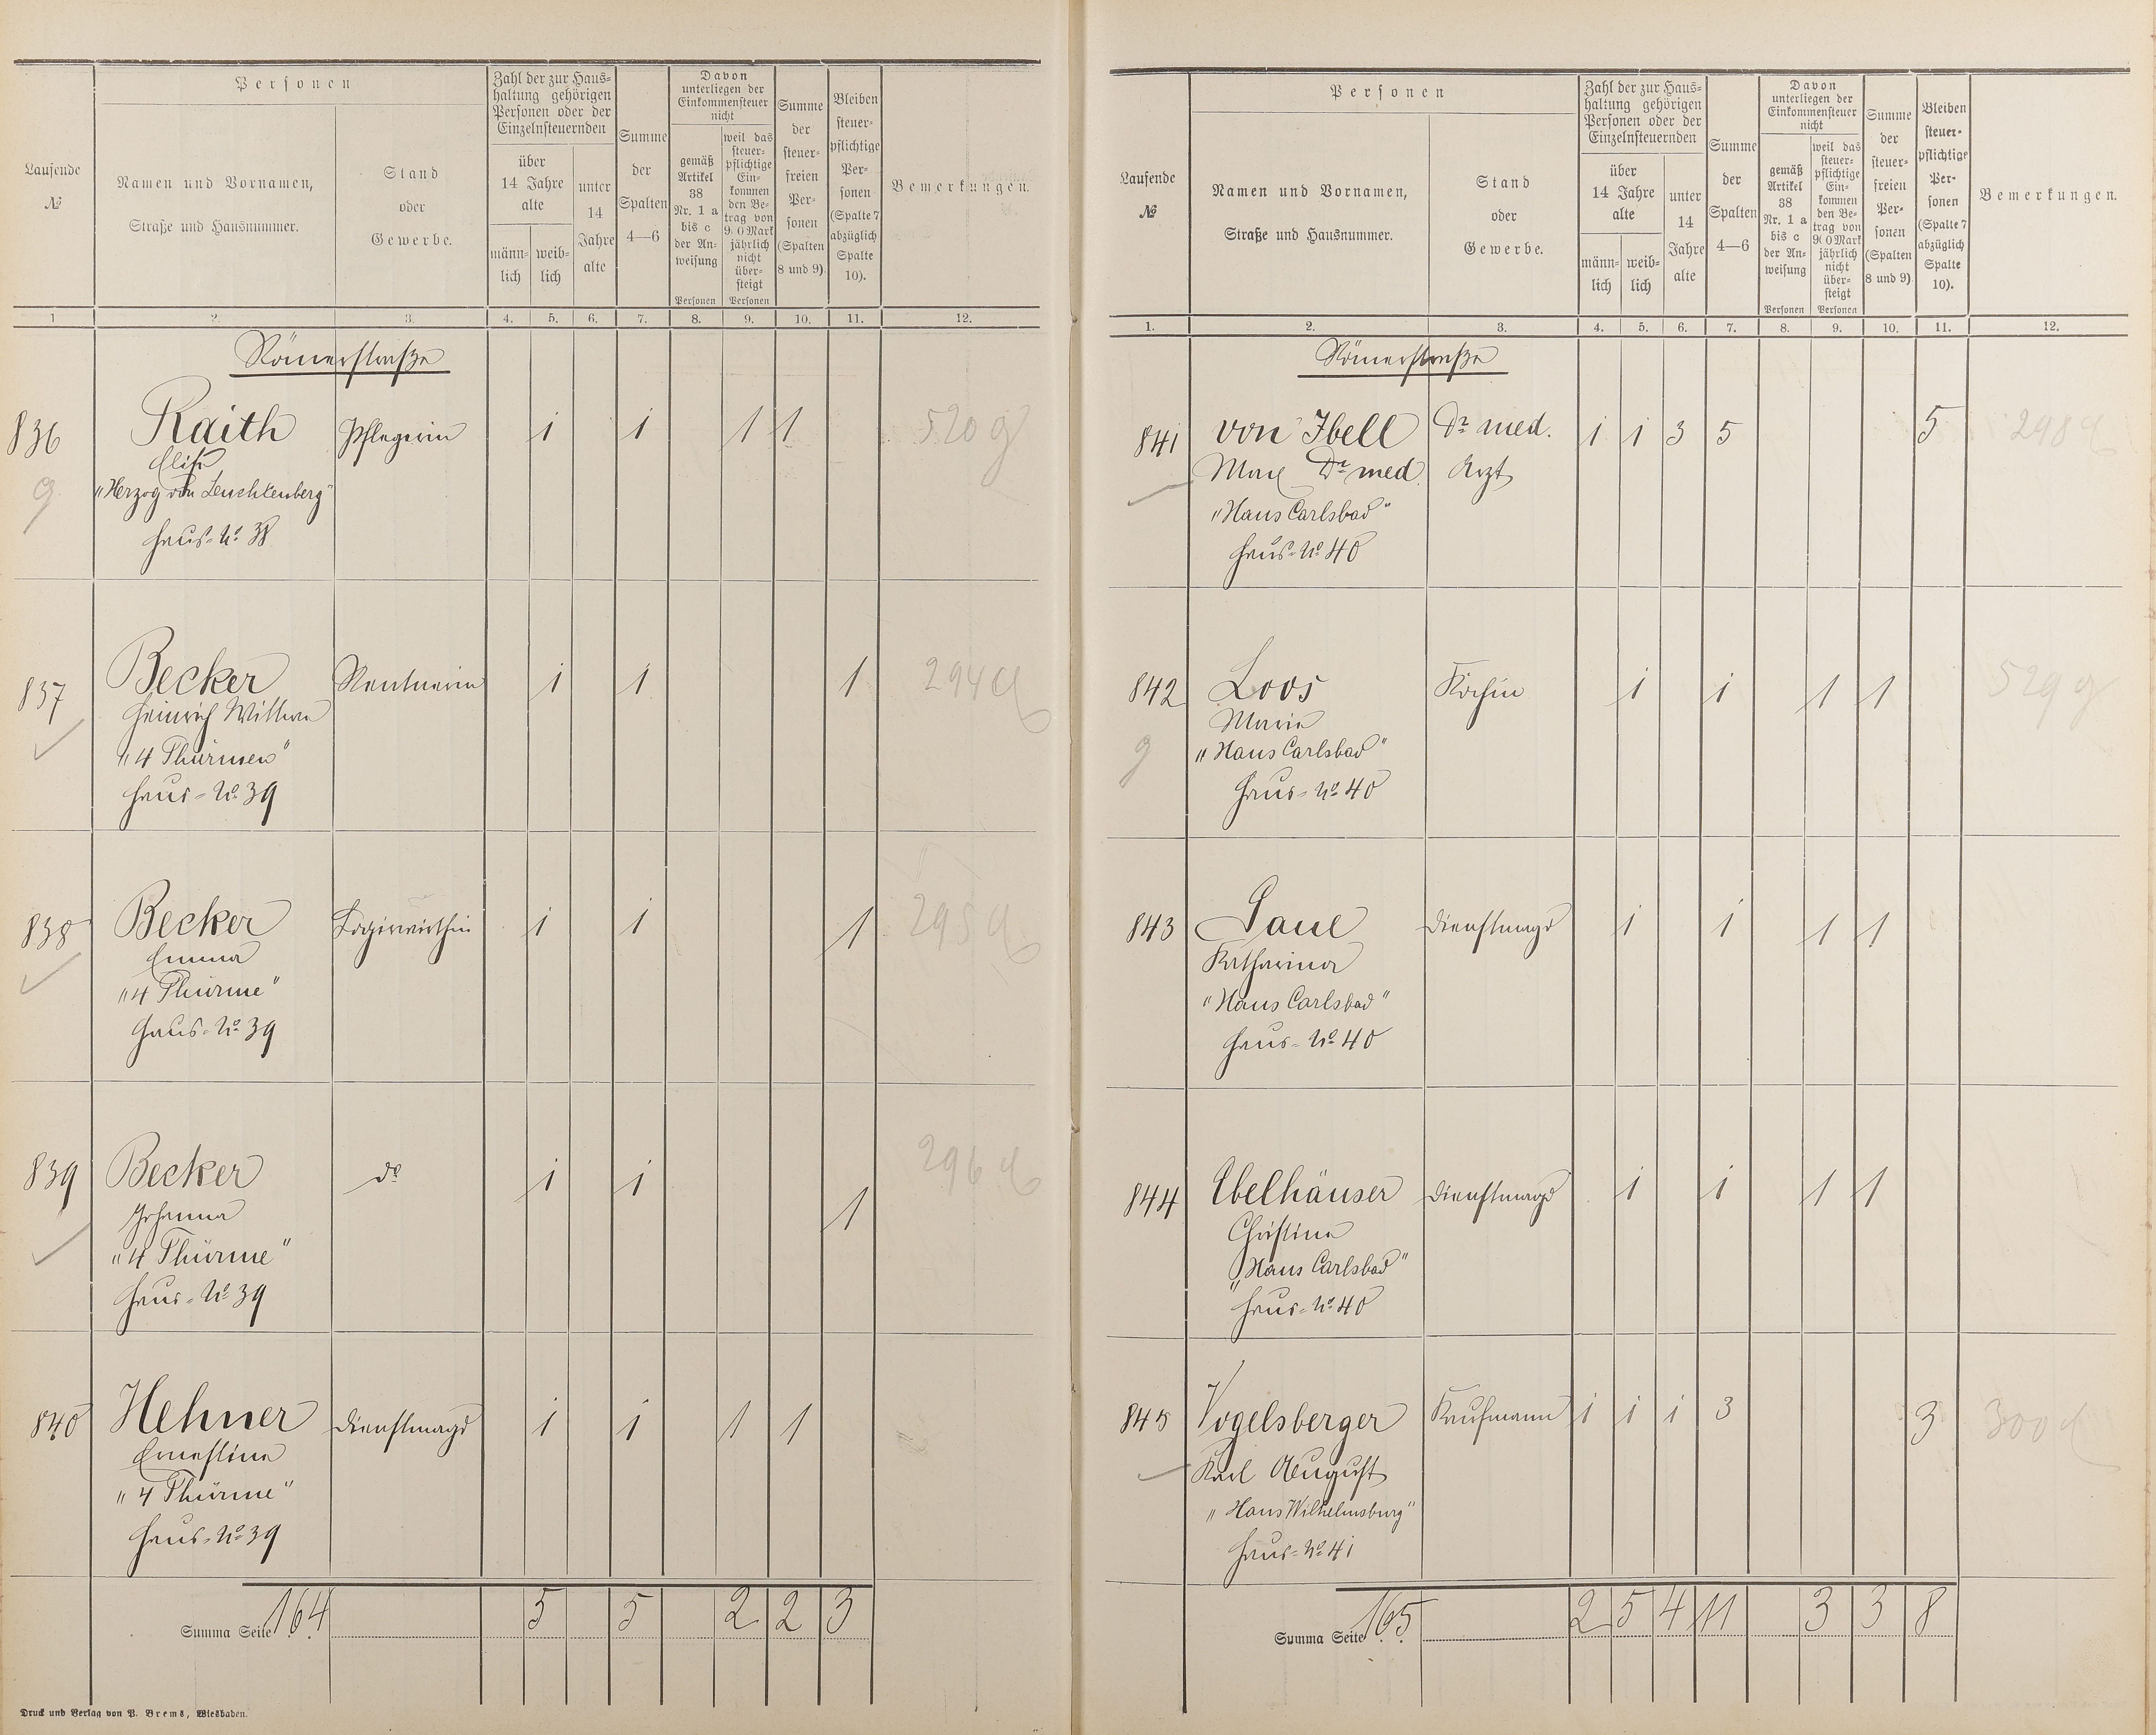 Laufende
№
Personen
Namen und Vornamen,
Straße und Hausnummer.
Stand
oder
Gewerbe.
Zahl der zur Haus-
haltung gehörigen
Personen oder der
Einzelnsteuernden
über
14 Jahre
alte
männ-
lich
weib-
lich
unter
14
Jahre
alte
Summe
der
Spalten
4—6
Davon
unterliegen der
Einkommensteuer
nicht
gemäß
Artikel
38
Nr. 1 a
bis c
der An-
weisung
Personen
weil das
steuer-
pflichtige
Ein-
kommen
den Be-
trag von
900 Mark
jährlich
nicht
über-
steigt
Personen
Summe
der
steuer-
freien
Per-
sonen
(Spalten
8 und 9)
Bleiben
steuer-
pflichtige
Per-
sonen
(Spalte 7
abzüglich
Spalte
10).
Bemerkungen.
1 2. 3. 4. 5. 6. 7. 8. 9. 10. 11. 12.
Römerstraße
836 Raith Pflegerin 1 1 1 1 520 g
g Elise
"Herzog von Leuchtenberg"
Haus-No. 38
837 Becker Rentnerin 1 1 1 294
Heinrich Wittwe
"4 Thürmen"
Haus-No. 39
838 Becker Logirwirthin 1 1 1 295
Emma
"4 Thürme"
Haus-No. 39
839 Becker do 1 1 1 296
Johanna
"4 Thürme"
Haus-No. 39
840 Hehner Dienstmagd 1 1 1 1
Ernestine
"4 Thürme"
Haus-No. 39
Summa Seite 164 5 5 2 2 3
Druck und Verlag von P. Brems, Wiesbaden.
Laufende
№
Personen
Namen und Vornamen,
Straße und Hausnummer.
Stand
oder
Gewerbe.
Zahl der zur Haus-
haltung gehörigen
Personen oder der
Einzelnsteuernden
über
14 Jahre
alte
männ-
lich
weib-
lich
unter
14
Jahre
alte
Summe
der
Spalten
4—6
Davon
unterliegen der
Einkommensteuer
nicht
gemäß
Artikel
38
Nr. 1 a
bis c
der An-
weisung
Personen
weil das
steuer-
pflichtige
Ein-
kommen
den Be-
trag von
900 Mark
jährlich
nicht
über-
steigt
Personen
Summe
der
steuer-
freien
Per-
sonen
(Spalten
8 und 9)
Bleiben
steuer-
pflichtige
Per-
sonen
(Spalte 7
abzüglich
Spalte
10).
Bemerkungen.
1. 2. 3. 4. 5. 6. 7. 8. 9. 10. 11. 12.
Römerstraße
841 von Ibell Dr med. 1 1 3 5 5 298
Max Dr med. Arzt
"Haus Carlsbad"
Haus-No 40
842 Loos Köchin 1 1 1 1 529 g
Marie
g "Haus Carlsbad"
Haus-No 40
843 Paul Dienstmagd 1 1 1 1
Katharina
"Haus Carlsbad"
Haus-No 40
844 Ebelhäuser Dienstmagd 1 1 1 1
Christine
"Haus Carlsbad"
Haus-No 40
845 Vogelsberger Kaufmann 1 1 1 3 3 300
Karl August
"Haus Wilhelmsburg"
Haus-No 41
Summa Seite 165 2 5 4 11 3 3 8